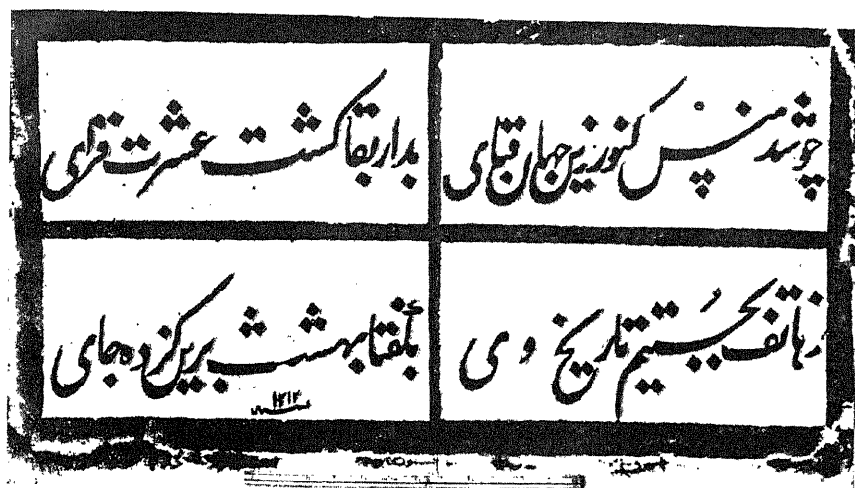 چو شد پنس کنور زین جهان فنای
بدار بقا گشت عشرت فزای
ز هاتف بجستیم تاریخ وی
بگفتا بهشت برین کرده جای
۱۲۱۲